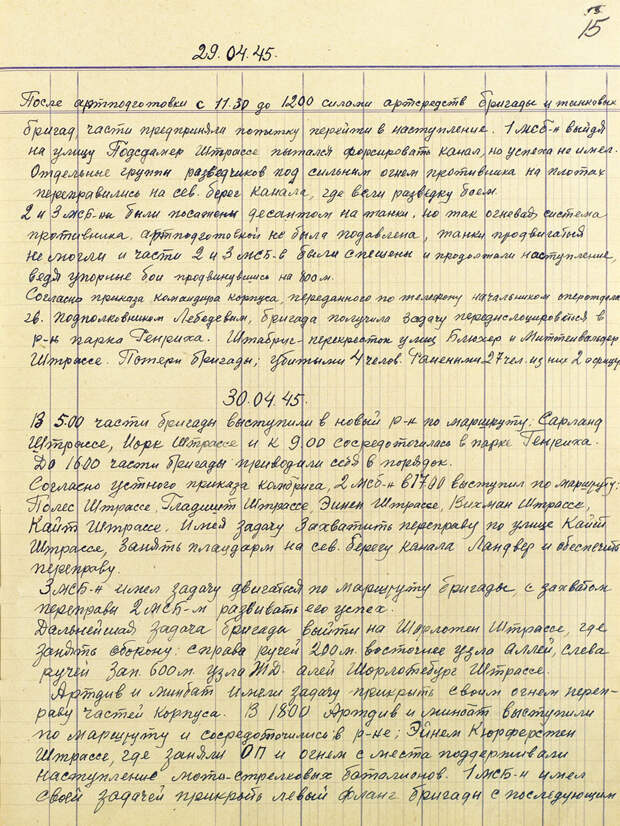 15
29.04.45.
После артподготовки с 11.30 до 1200 силами артсредств бригады и танковых
бригад, части предприняли попытку перейти в наступление. 1 мсб-н выйдя
на улицу Подсдамер Штрассе пытался форсировать канал, но успеха не имел.
Отдельные группы разведчиков под сильным огнем противника на плотах
переправились на сев. берег канала, где вели разведку боем.
2 и 3 мсб-ны были посажены десантом на танки, но так огневая система
противника, артподготовкой не была подавлена, танки продвигаться
не могли и части 2 и 3 мсб-в были спешены и продолжали наступление,
ведя упорные бои продвинувшись на 400 м.
Согласно приказа командира корпуса, переданного по телефону начальником оперотдела
гв. подполковником Лебедевым, бригада получила задачу передислоцироваться в
р-н парка Генриха. Штабриг - перекресток улиц Блюхер и Миттенвальдер
Штрассе. Потери бригады; убитыми 4 челов. Ранеными 27 чел. из них 2 офицер
30.04.45.
В 5.00 части бригады выступили в новый р-н по маршруту: Сарланд
Штрассе, Иорк Штрассе и к 9.00 сосредоточилась в парке Генриха.
До 1600 части бригады приводили себя в порядок.
Согласно устного приказа комбрига, 2 мсб-н в 1700 выступил по маршруту:
Полес Штрассе, Гладишт Штрассе, Эйнен Штрассе, Вихман Штрассе,
Кайт Штрассе. Имея задачу Захватить переправу по улице Кайт
Штрассе, Занять плацдарм на сев. берегу канала Ландвер и обеспечить
переправу.
3 мсб-н имел задачу двигаться по маршруту бригады, с захватом
переправы 2 мсб-м развивать его успех.
Дальнейшая задача бригады выйти на Шарлотен Штрассе, где
занять оборону: справа ручей 200 м. восточнее узла аллей, слева
ручей Зап. 600 м. узла ЖД. алей Шорлотебург Штрассе.
Артдив и минбат имели задачу прикрыть своим огнем переп-
раву частей корпуса. В 1800 Артдив и минбат выступили
по маршруту и сосредоточились в р-не; Эйнем Кюрферстен
Штрассе, где заняли ОП и огнем с места поддерживали
наступление мото-стрелковых баталионов. 1 мсб-н имел
своей задачей прикрыть левый фланг бригады с последующим